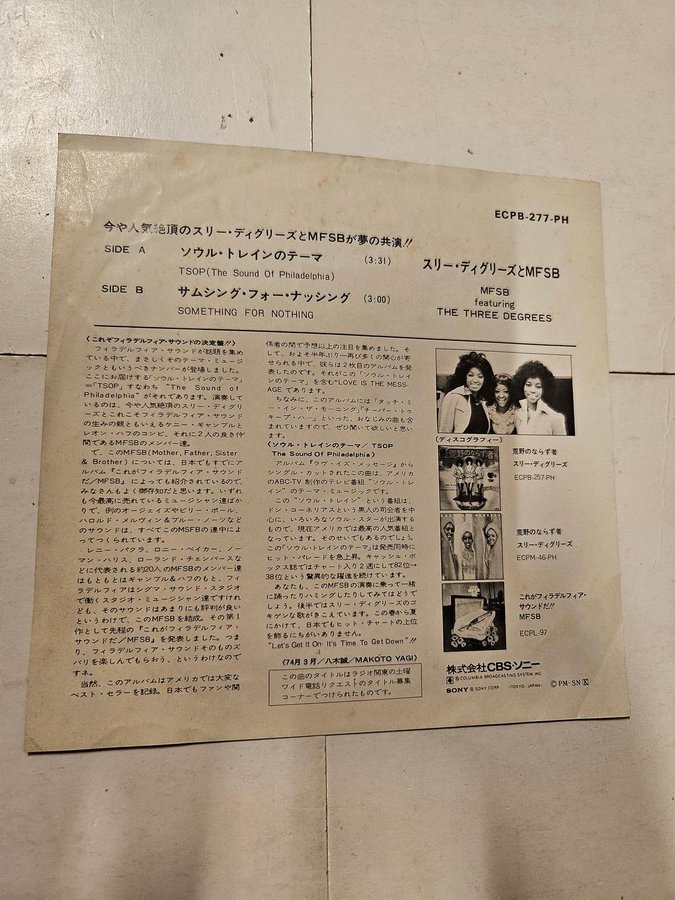 ECPB-277-PH
今や人気絶頂のスリー・ディグリーズとMFSBが夢の共演!!
SIDE A ソウル・トレインのテーマ (3:31)
TSOP(The Sound Of Philadelphia)
SIDE B サムシング・フォー・ナッシング (3:00)
SOMETHING FOR NOTHING
スリー・ディグリーズとMFSB
MFSB
featuring
THE THREE DEGREES
(これぞフィラデルフィア・サウンドの決定盤!!)
フィラデルフィア・サウンドが話題を集め
ている中で、まさしくそのテーマ・ミュージ
ックともいうべきナンバーが登場しました。
ここにお届けする「ソウル・トレインのテーマ」
=「TSOP」すなわち "The Sound of
Philadelphia"がそれであります。演奏して
いるのは、今や人気絶頂のスリー・ディグリ
ーズとこれこそフィラデルフィア・サウンド
の生みの親ともいえるケニー・ギャンブルと
レオン・ハフのコンビ、それに2人の良き仲
間であるMFSBのメンバー達。
で、このMFSB(Mother, Father, Sister
& Brother)については、日本でもすでにアル
バム『これがフィラデルフィア・サウンド
だ/MFSB』によっても紹介されているので、
みなさんもよく御存知だと思います。いずれ
も今最高に売れているミュージシャン達ばか
りで、例のオージェイズやビリー・ポール、
ハロルド・メルヴィン&ブルー・ノーツなど
のサウンドは、すべてこのMSFBの連中によ
ってつくられています。
レニー・パクラ、ロニー・ベイカー、ノー
マン・ハリス、ローランド・チェンバースな
どに代表される約20人のMFSBのメンバー達
はもともとはギャンブル&ハフのもと、フィ
ラデルフィアはシグマ・サウンド・スタジオ
で働くスタジオ・ミュージシャン達ですけれ
ども、そのサウンドはあまりにも評判が良い
というわけで、このMFSBを結成。その第1
作として先程の『これがフィラデルフィア・
サウンドだ/MFSB』を発表しました。つま
り、フィラデルフィア・サウンドそのものズ
バリを楽しんでもらおう、というわけなので
すネ。
当然、このアルバムはアメリカでは大変な
ベスト・セラーを記録。日本でもファンや関
係者の間で予想以上の注目を集めました。そ
して、およそ半年ぶり一再び多くの関心が寄
せられる中で、彼らは2枚目のアルバムを発
表したのです。それがこの「ソウル・トレイ
ンのテーマ」を含む"LOVE IS THE MESS-
AGEであります。
ちなみに、このアルバムには「タッチ・ミ
ー・イン・ザ・モーニング」「チーパー・トゥ
キープ・ハー」といった、おなじみの曲も含
まれていますので、ぜひ聞いて欲しいと思い
ます。
(ソウル・トレインのテーマ/TSOP
The Sound Of Philadelphia)
アルバム『ラヴ・イズ・メッセージ』から
シングル・カットされたこの曲は、アメリカ
のABC-TV 制作のテレビ番組“ソウル・トレ
イン”のテーマ・ミュージックです。
この“ソウル・トレイン”という番組は、
ドン・コーネリアスという黒人の司会者を中
心に、いろいろなソウル・スターが出演する
もので、現在アメリカでは最高の人気番組と
なっています。そのせいでもあるのでしょう。
この「ソウル・トレインのテーマ」は発売同時に
ヒット・パレードを急上昇。キャッシュ・ボ
ックス誌ではチャート入り2週にして82位→
38位という驚異的な躍進を続けています。
あなたも、このMFSBの演奏に乗って一緒
に踊ったりハミングしたりしてみてはどうで
しょう。後半ではスリー・ディグリーズのゴ
キゲンな歌がきこえています。この春から夏
にかけて、日本でもヒット・チャートの上位
を飾るにちがいありません。
"Let's Get It On It's Time To Get Down"!!
(74月3月/八木誠/MAKOTO YAGI)
この曲のタイトルはラジオ関東の土曜
ワイド電話リクエストのタイトル募集
コーナーでつけられたものです。
(ディスコグラフィー)
荒野のならず者
スリー・ディグリーズ
ECPB-257-PH
荒野のならず者
スリー・ディグリーズ
ECPM-46-PH
これがフィラデルフィア・
サウンドだ!!
MFSB
ECPL-97
株式会社CBS・ソニー
COLUMBIA BROADCASTING SYSTEM INC
SONY SONY CORP (TOKYO JAPAN) ⓒPM・SN Ⓚ